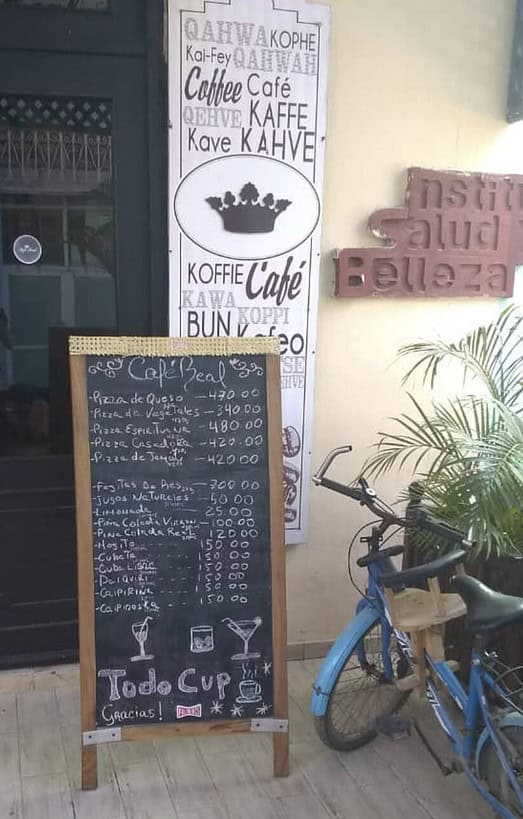 QAHWA KOPHE
Kai-Fey QAHWAH
Coffee Café
QEHVE KAFFE
Kave KAHVE
KOFFIE Café
KAWA KOPPI
BUN Kafeo
nstit
Salud
Belleza
Café Real
-Pizza de Queso — 470.00
-Pizza de Vegetales — 340.00
-Pizza Espirituana — 480.00
-Pizza Casadora — 420.00
-Pizza de — 420.00
-Fajitas De Res — 200.00
-Jugos Naturales — 50.00
-Limonada 25.00
-Piña Colada Virgen — 100.00
-Piña Colada 120.00
-Mojito 150.00
-Cubata 150.00
-Cuba Libre 150.00
-Daiquiri 150.00
-Caipiriña 150.00
-Caipiroska 150.00
Todo Cup
Gracias!